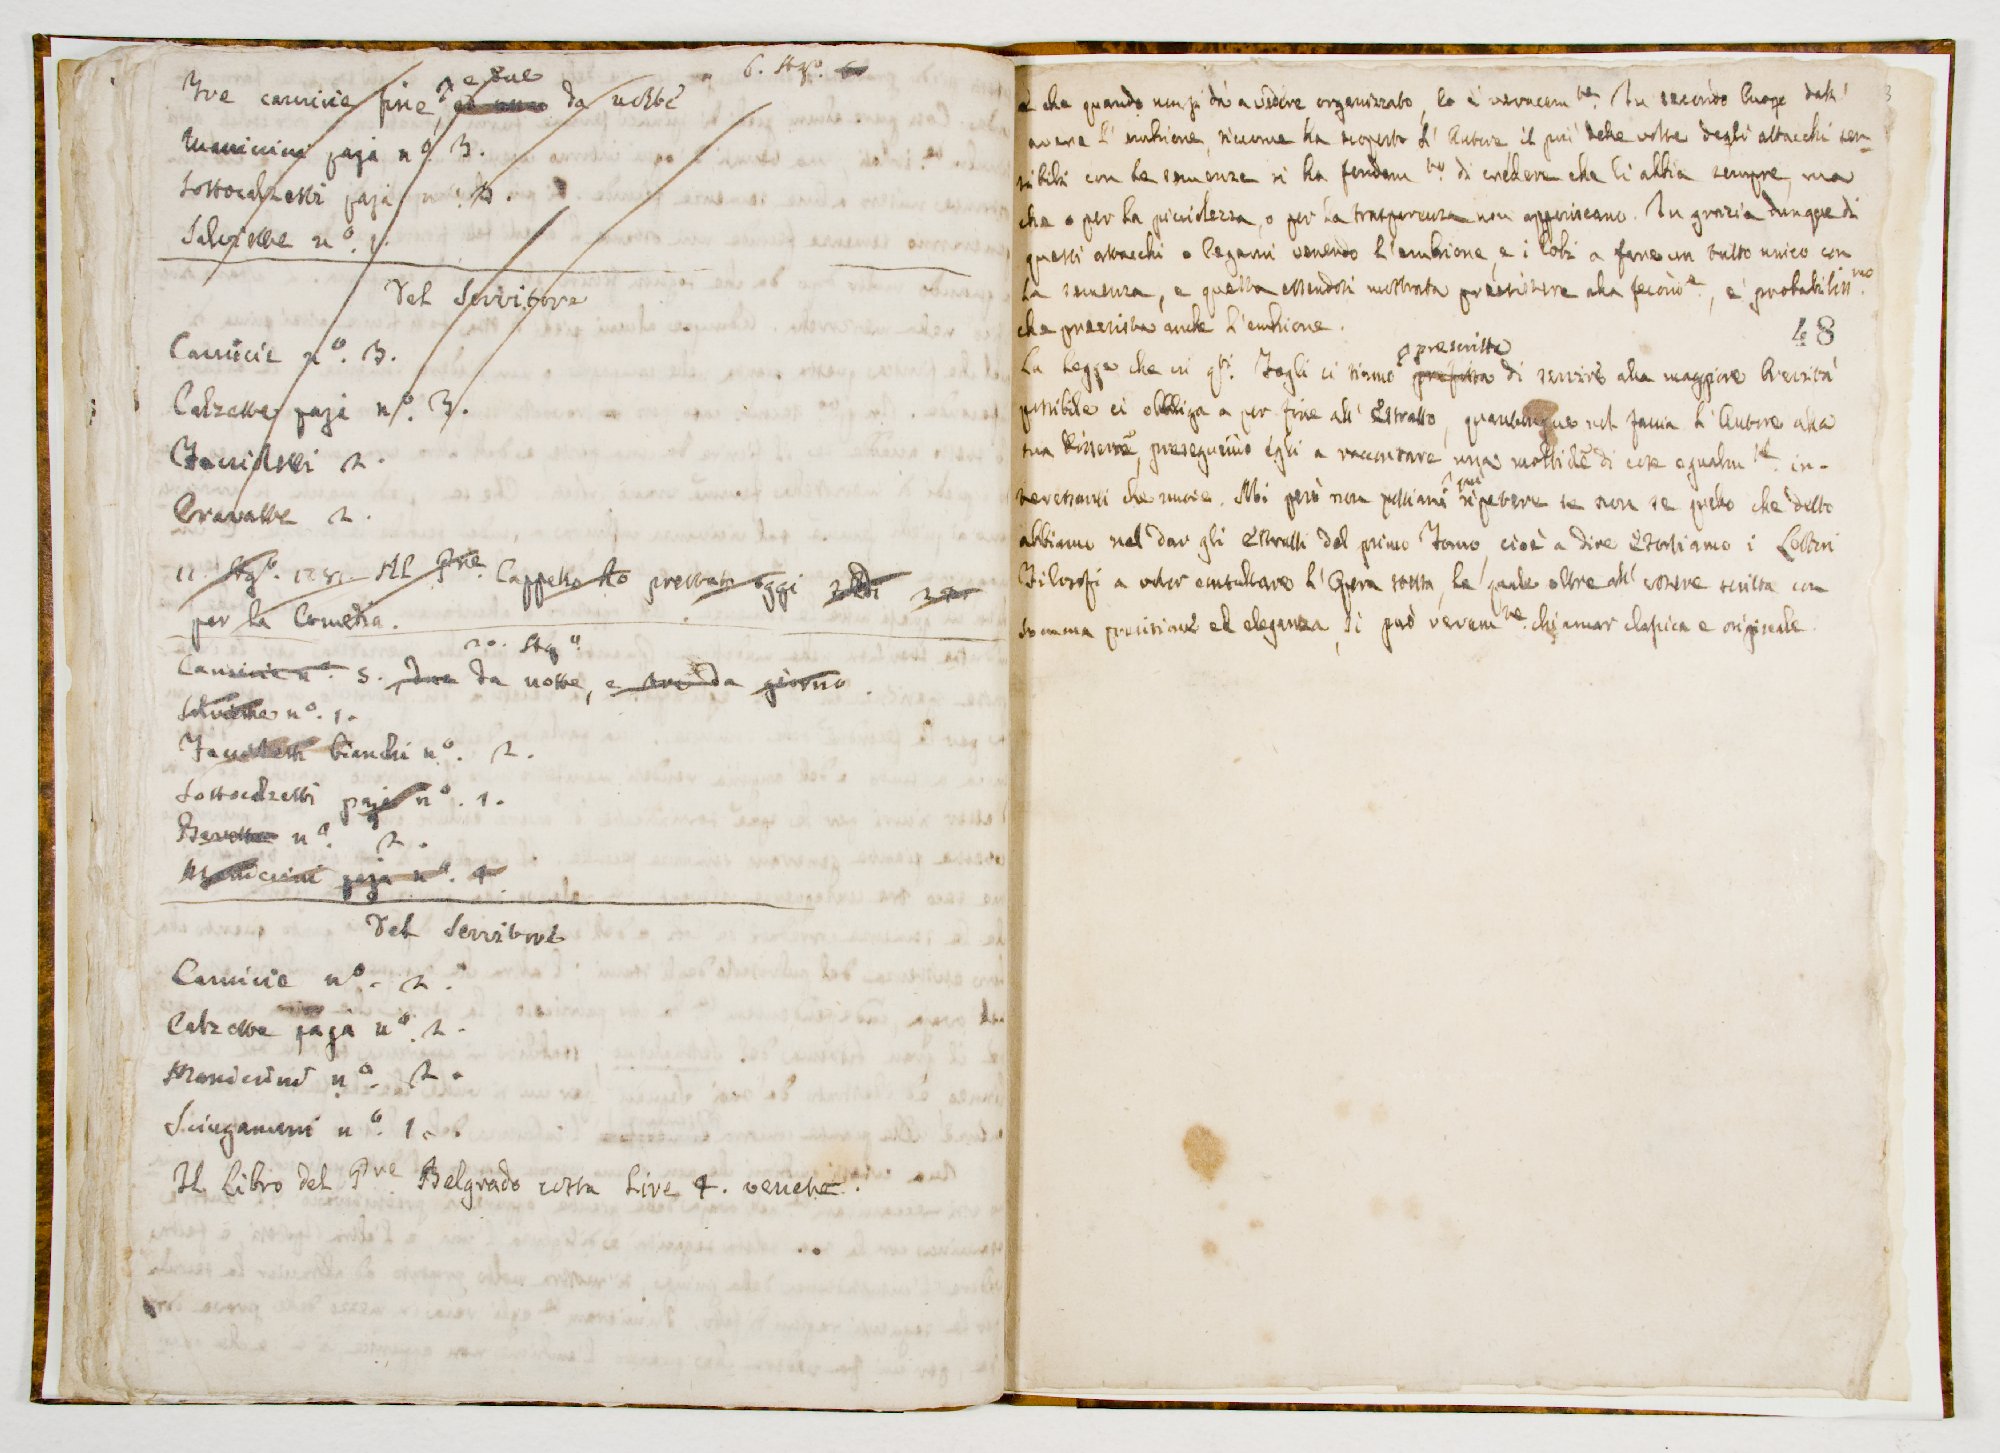 6. Ag.º
Tre camicie fine, e due da notte
Manicini paja nº. 3.
Sottocalzetti paja nº. 3.
Salviette nº. 1.
Del Servitore
Camicie nº. 3.
Calzette paja nº. 3.
Fazzoletti 2.
Cravatte 2.
12. Ag.º Al Pre. Cappello prestato oggi
per la Comedia.
20. Ag.º
Camicie nº. 5. due da notte, e tre da giorno.
Salviette nº. 1.
Fazzoletti bianchi nº. 2.
Sottocalzetti paja nº. 1.
Berette nº. 2.
Manicini paja nº. 4
Del Servitore
Camicie nº. 2.
Calzette paja nº. 2.
Manicini nº. 2.
Sciugamani nº. 1.
Il Libro del Pre Belgrado costa Lire 4. venete.
3
è che quando non si dà a vedere organizzato, lo è veracemte. In secondo luogo dall'
avere l'embrione, siccome ha scoperto l'Autore il più delle volte degli attacchi sen-
sibili con le semenze si ha fondamto. di credere che li abbia sempre, ma
che o per la picciolezza, o per la trasparenza non appariscano. In grazia dunque di
questi attacchi o legami venendo l'embrione, e i lobi a fare un tutto unico con
la semenza, e questa essendosi mostrata preesistere alla fecone., è probabilissmo.
che preesista anche l'embrione.
48
La legge che in qti. Fogli ci siamo prefissa prescritta di servire alla maggiore brevità
possibile ci obbliga a por fine all'Estratto, quantunque nol faccia l'Autore alla
sua Dissere, proseguendo egli a raccontare una moltide di cose egualmte. in-
teressanti che nuove. Noi però non possiamo qui ripetere se non se quello che detto
abbiamo nel dar gli Estratti del primo Tomo, cioè a dire Esortiamo i Lettori
Filosofi a voler consultare l'Opera stessa, la quale oltre all'essere scritta con
somma precisione ed eleganza, si può veramte. chiamar classica e originale.